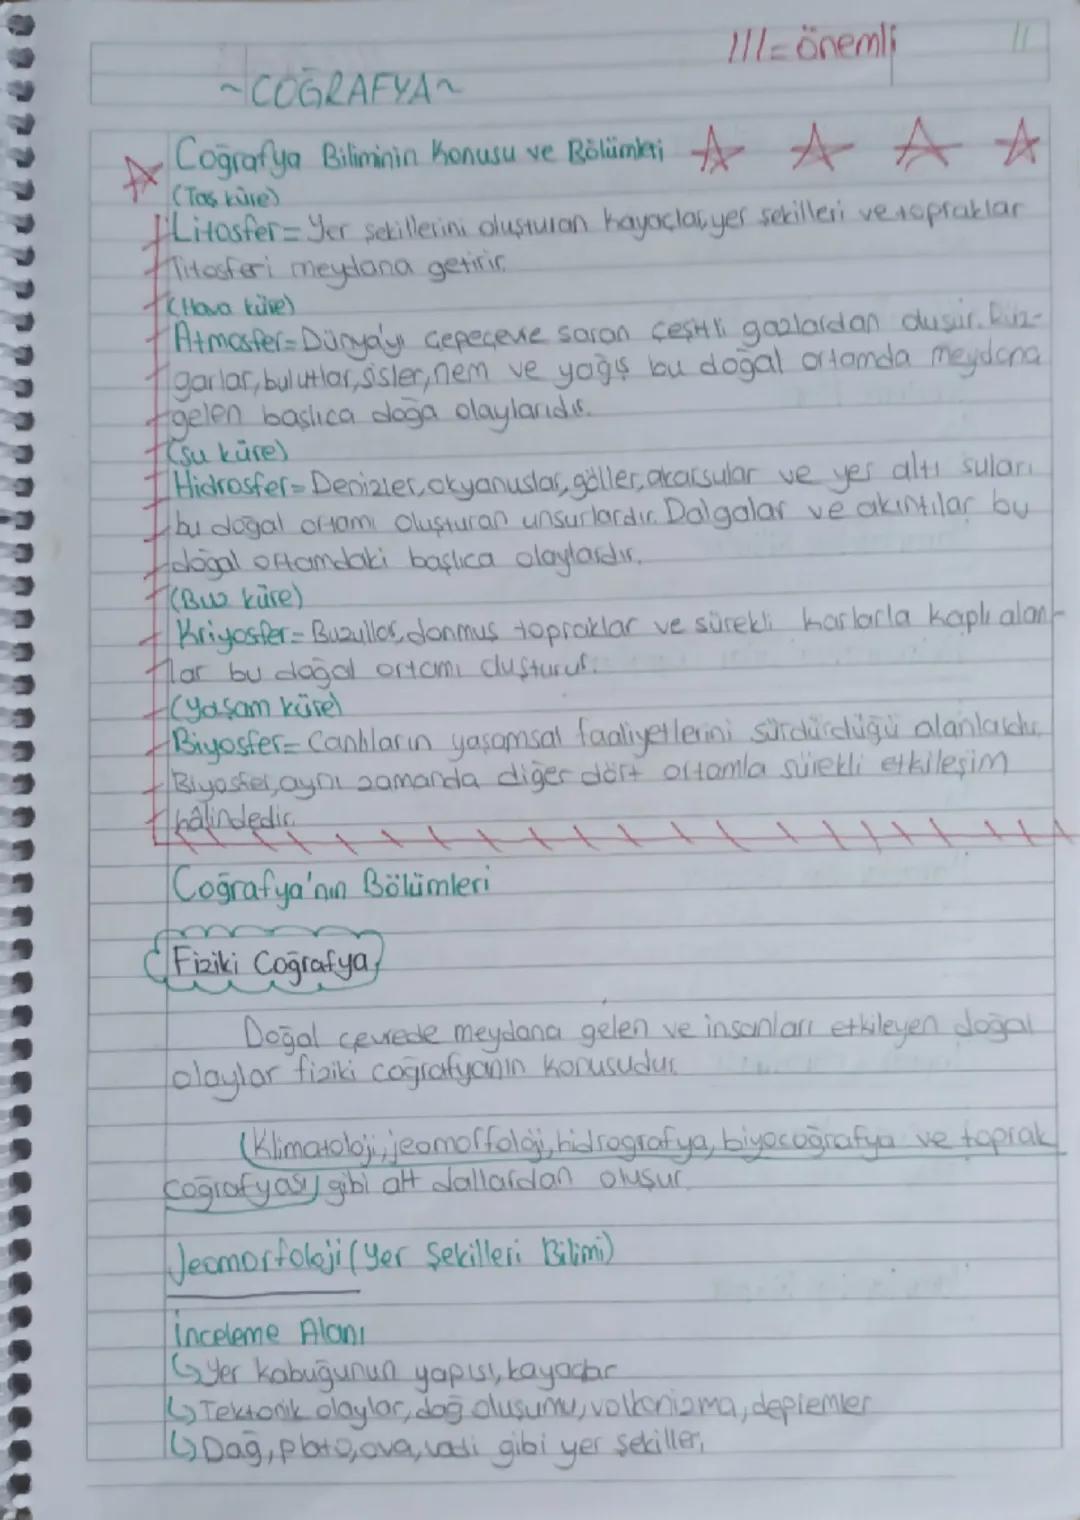 ///=önemli
~COĞRAFYA~
Coğrafya Biliminin Konusu ve Bölümleri
(Taş küre)
Litosfer=Yer şekillerini oluşturan kayaçlar,yer şekilleri ve topraklar
litosferi meydana getirir.
(Hava küre)
Atmosfer=Dünya'yı çepeçevre saran çeşitli gazlardan oluşur. Rüz-
garlar,bulutlar,sisler,nem ve yağış bu doğal ortamda meydana
gelen başlıca doğa olaylarıdır.
(su küre)
Hidrosfer=Denizler,okyanuslar,göller,akarsular ve yer altı suları
bu doğal ortamı oluşturan unsurlardır. Dalgalar ve akıntılar bu
doğal ortamdaki başlıca olaylardır.
(Buz küre)
Kriyosfer=Buzullar,donmuş topraklar ve sürekli karlarla kaplı alan-
lar bu doğal ortamı oluşturur.
(yaşam küre)
Biyosfer=Canlıların yaşamsal faaliyetlerini sürdürdüğü alanlardır.
Biyosfer,aynı zamanda diğer dört ortamla sürekli etkileşim
hâlindedir.
Coğrafya'nın Bölümleri
Fiziki Coğrafya
Doğal çevrede meydana gelen ve insanları etkileyen doğal
olaylar fiziki coğrafyanın konusudur.
(Klimatoloji,jeomorfoloji,hidrografya,biyocoğrafya ve toprak
coğrafyası) gibi alt dallardan oluşur
Jeomorfoloji(Yer Şekilleri Bilimi)
İnceleme Alanı
↳Yer kabuğunun yapısı,kayaçlar
↳Tektonik olaylar,dağ oluşumu,volkanizma,depremler
↳Dağ,plato,ova,vadi gibi yer şekilleri